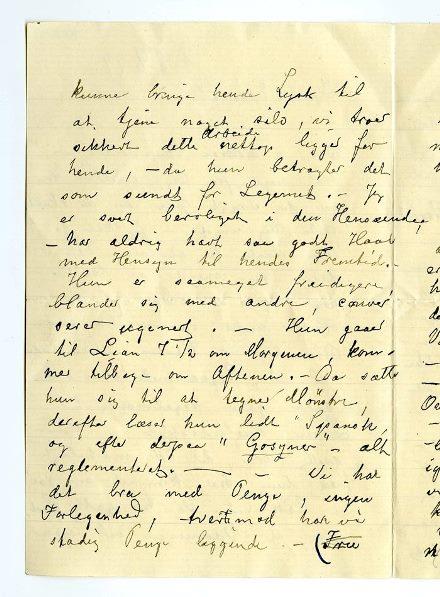 kunne bringe hende Lyst til
at tjene noget selv, vi troer
sikkert dette Arbeide netop ligger for
hende, – da hun betragter det
som sundt for Legemet. – Jeg
er svært beroliget i den Henseende,
– har aldrig havt saa godt Haab
med Hensyn til hendes Fremtid. –
Hun er saameget frædigere,
blander sig med andre, conver
serer ugenert. – Hun gaaer
til Lian 7 1/2 om Morgenen, kom-
mer tilbage om Aftenen. – Da sætter
hun sig til at tegne Mønstre,
derefter læser hun lidt "Spansk",
og efter derpaa " " – alt
reglementeret. – –
Vi har
det bra med Penge, ingen
Forlegenhed, tvertimod har vi
stadig Penge liggende. – (Fru